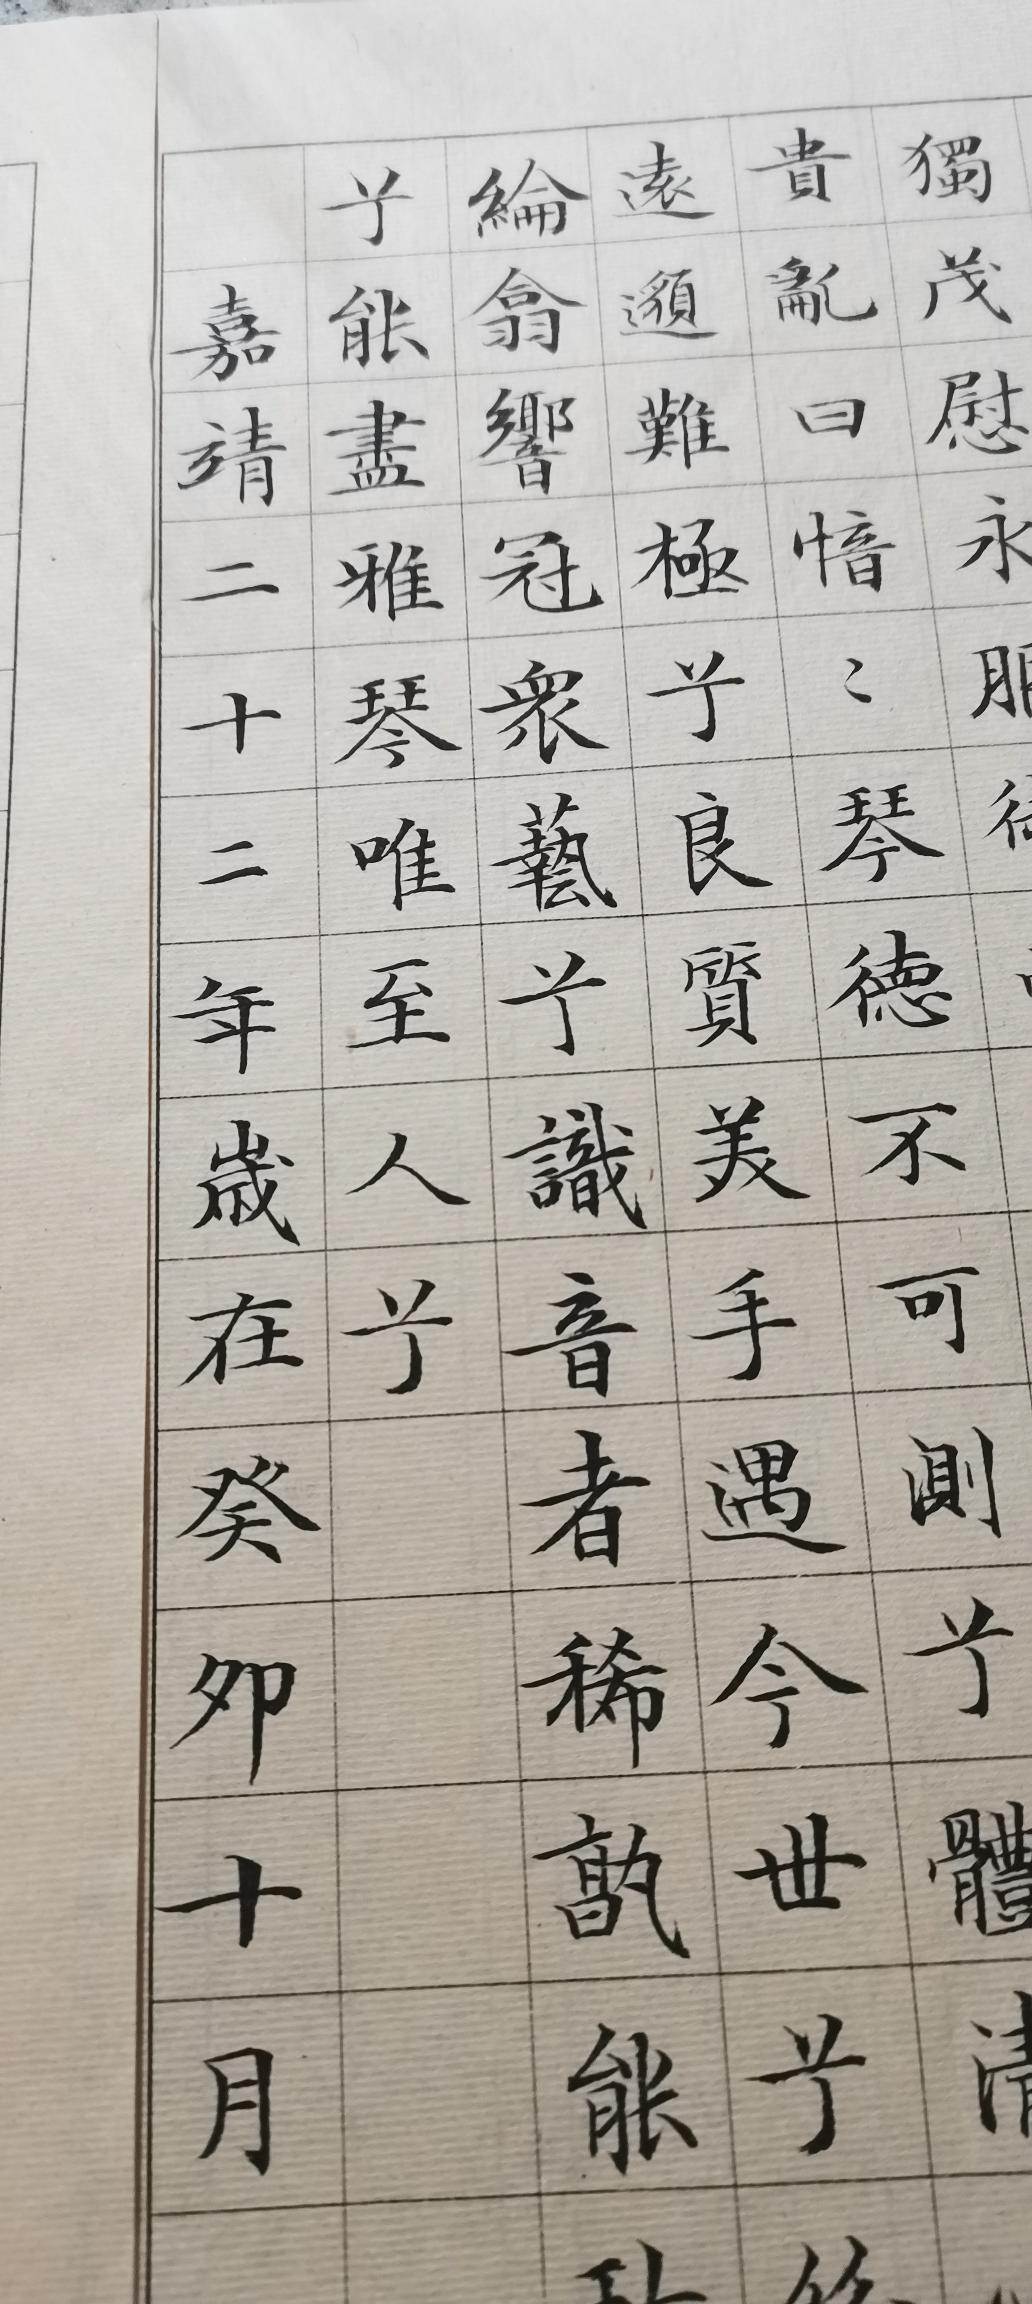 獨茂慰永服
貴亂曰愔〻琴德不可測兮體清
遠邈難極兮良質美手遇今世兮
綸翕響冠衆藝兮識音者稀孰能
兮能盡雅琴唯至人兮
嘉靖二十二年歲在癸卯十月